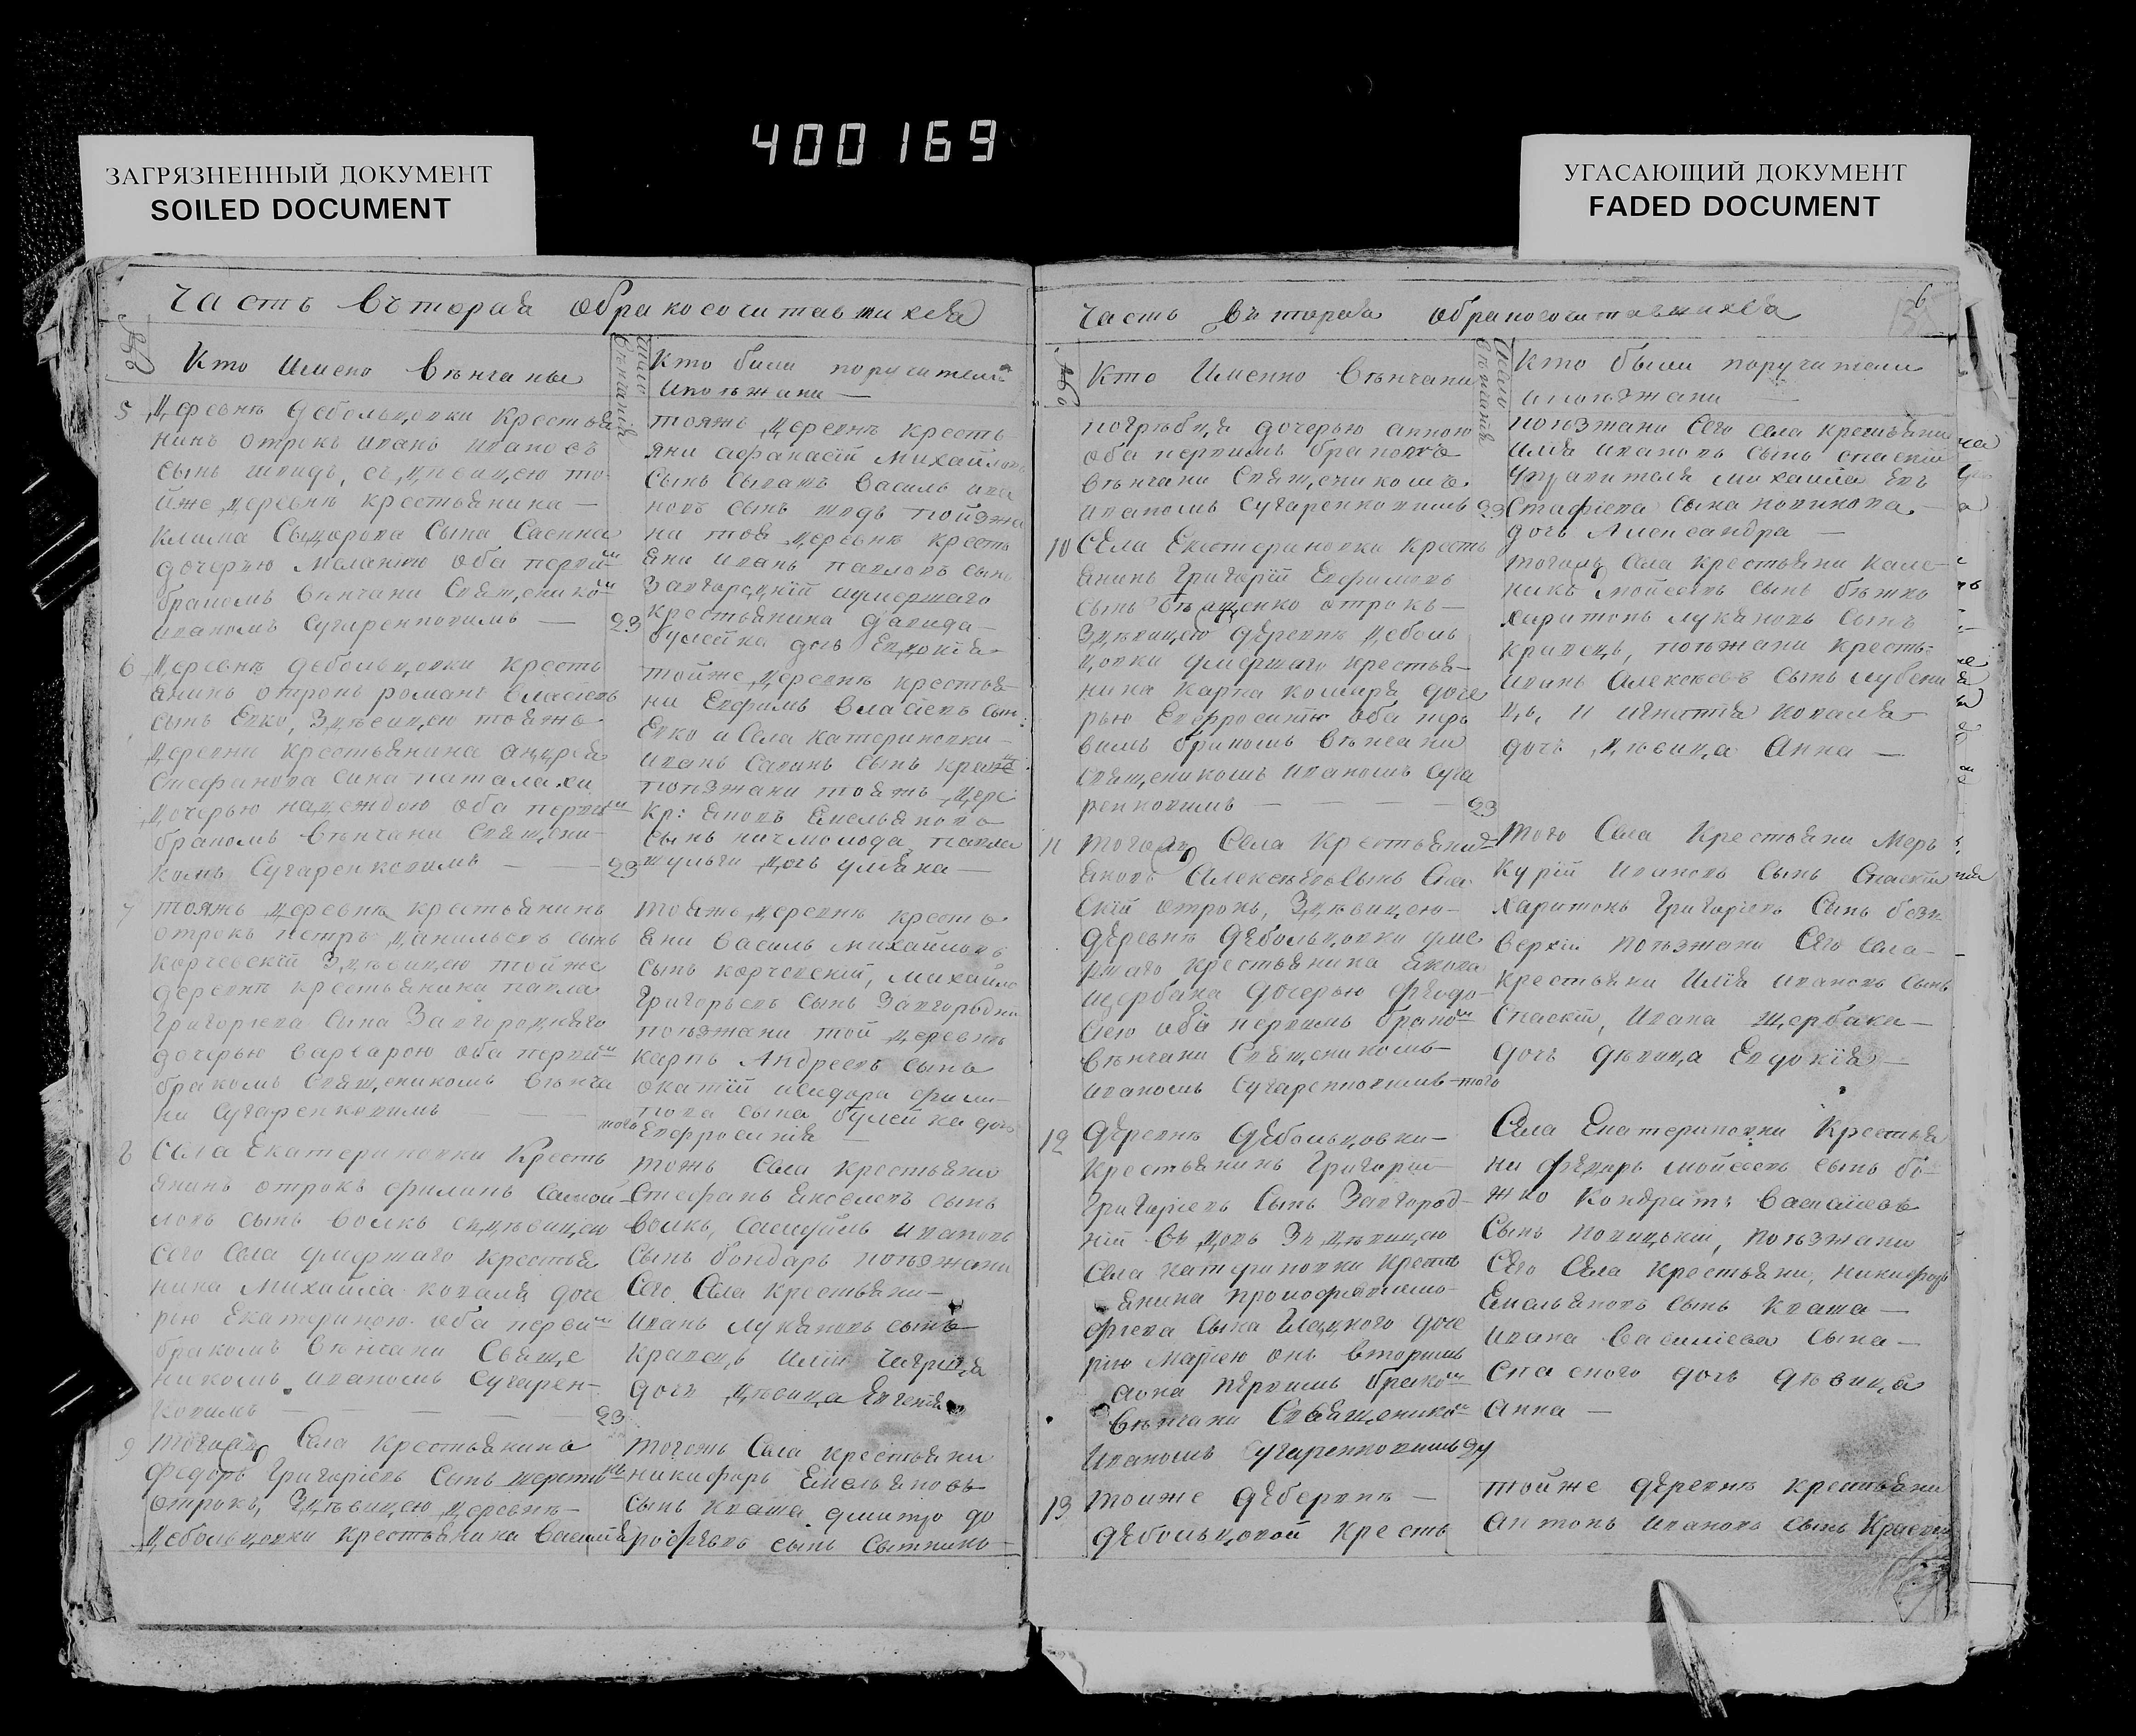 400169
ЗАГРЯЗНЕННЫЙ ДОКУМЕНТ
SOILED DOCUMENT
УГАСАЮЩИЙ ДОКУМЕНТ
FADED DOCUMENT
Часть вторая обракосочитавшихся
№
Кто Имено вѣнчаны
число вѣнчанія
Кто били поручители
ипоѣжани —
5 Деревнѣ Дебольцовки крестья
нинъ отрокъ иванъ ивановъ
сынъ швидъ, съ девицею то
йже деревнѣ крестьянина —
клима Сыдорова Сына Саенка
дочерью Маланiею оба первым
бракомъ вѣнчани Священико
иваномъ Сугаренковимъ — 23
тояжъ деревнѣ кресть
яни афанасiй Михайловъ
сынъ василь ива
новъ сынъ швидъ поизжа
ни тоя деревнѣ кресть
яни иванъ павловъ сынъ
Завгородкiй умершаго
крестьянина давида
булейка дочь Евдокiя
6 Деревнѣ дебольцовки кресть
янинъ отрокъ романъ власiевъ
сынъ Евко, Здѣвицею тояжъ
деревни крестьянина андрея
Стефанова сина паталахи
дочерью надеждою оба первым
бракомъ вѣнчани Священи
комъ Сугаренковимъ — 23
тойже деревнѣ крестья
ни Евфимъ власiевъ сын
Евко и Села катериновки —
иванъ Савинъ сынъ
поизжани тояжъ дере
кр: яковъ Емельяновъ
сынъ ничмолода павла
шульги дочь уляна —
7 тояжъ деревнѣ крестьянинъ
отрокъ петръ данильевъ сынъ
корчевскiй Здѣвицею тойже
деревнѣ крестьянина павла
Григорiева Сина Завгородняго
дочерью варварою оба первым
бракомъ Священикомъ вѣнча
ни Сугаренковимъ — того
тояжъ деревнѣ кресть
яни василь михайловъ
сынъ корчевскiй, михайло
Григорьевъ сынъ Завгороднiй
поѣзжани той деревнѣ
карпъ Андреевъ сынъ
исидора фили
пова сына булейка дочь
Евфросинiя —
8 Села Екатериновки Кресть
янинъ отрокъ филипъ Самой
ловъ сынъ волкъ сдѣвицею
сего Села умершаго крестья
нина михайла коваля доче
рю Екатериною оба первим
бракомъ вѣнчани Свяще
никомъ иваномъ Сугарен
ковимъ — 23
тожъ Села крестьяни
Стефанъ яковлевъ сынъ
волкъ, самуйлъ ивановъ
сынъ бондарь поѣзжани
Сего Села крестьяни —
иванъ лукяновъ сынъ
кравецъ илiи
дочь дѣвица Евгенiя
9 Тогожъ Села крестьянинъ
федоръ Григорiевъ Сынъ
отрокъ, Здѣвицею деревнѣ
дебольцовки крестьянина василiя
тогожъ Села крестьяни
никифоръ Емельяновъ
сынъ кваша дмитро до
рофѣевъ сынъ Ситникъ
Часть вторая обракосочитавшихся
6
№
Кто Именно вѣнчани
число вѣнчанiя
Кто были поручители
ипоѣзжани —
погрѣбця дочерью анною
оба первимъ бракомъ
вѣнчани Священикомъ
иваномъ Сугаренковимъ 23
поизжани Сего Села крестьяни
илiя ивановъ сынъ спаскiй
управителя михайла Ев
стафiева сына новикова
дочь Александра —
10 Села Екатериновки кресть
янинъ Григорiй Евфимовъ
сынъ отрокъ —
Здѣвицею деревнѣ деболь
цовки умершаго крестья
нина карпа комаря доче
рью Евфросинiю оба пер
вимъ бракомъ вѣнчани
Священикомъ иваномъ Суга
ренковимъ — 23
тогожъ Села крестьяни кале
никъ мойсеевъ сынъ божко
харитонъ лукяновъ сынъ
кравецъ, поѣзжани кресть:
иванъ Алексѣевъ сынъ лубене
ць, и игнатiя коваля
дочь дѣвица Анна —
11 тогожъ Села Крестьянинъ
яковъ Алексѣевъ Сынъ Спа
скiй отрокъ, Здѣвицею —
деревнѣ дебольцовки уме
ршаго крестьянина якова
щербака дочерью федо
сiею оба первимъ браком
вѣнчани Священикомъ
иваномъ Сугаренковимъ — того
того Села Крестьяни Мер
курiй ивановъ Сынъ Спаскiй
харитонъ Григорiевъ Сынъ безъ
верхiй поѣзжани Сего Села —
крестьяни Илiя ивановъ сынъ
Спаскiй, Ивана щербака —
дочь дѣвица Евдокiя —
12 Деревнѣ Дебольцовки —
крестьянинъ Григорiй
Григорiевъ Сынъ Завгород
нiй вдовъ Здѣвицею
Села катериновки кресть
янина
фiева Сына доче
рiю марiею онъ вторимъ
аона первимъ браком
вѣнчани Священико
иваномъ Сугаренковимъ 24
Села Екатериновки Крестья
ни федоръ мойсеевъ сынъ бо
жко Кондратъ васильевъ
Сынъ новицькiй, поѣзжани
Сего Села крестьяни, никифоръ
Емельяновъ сынъ кваша —
ивана василiева сына —
спаского дочь дѣвица
анна —
13 тойже деберинѣ —
дебольцовой кресть
тойже деревнѣ крестьяни
антонъ ивановъ сынъ